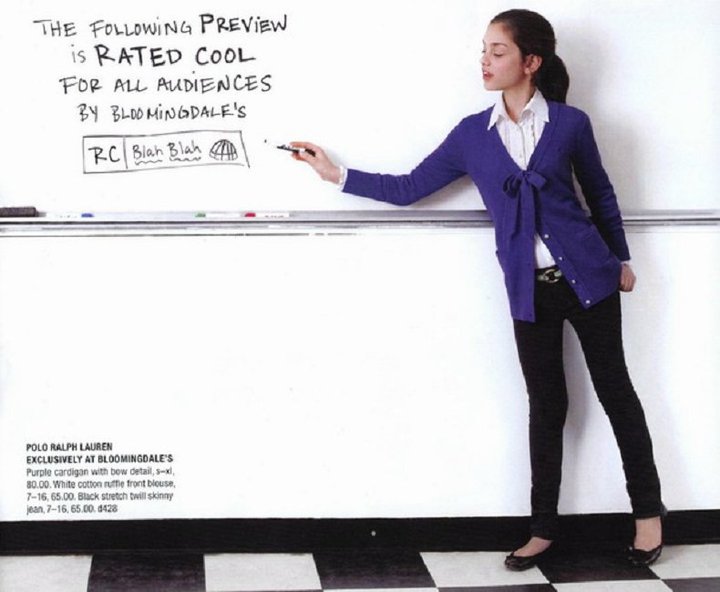 THE FOLLOWING PREVIEW
is RATED COOL
FOR ALL AUDIENCES
BY BLOOMINGDALE'S
RC Blah Blah
POLO RALPH LAUREN
EXCLUSIVELY AT BLOOMINGDALE'S
Purple cardigan with bow detail, s–xl,
80.00. White cotton ruffle front blouse,
7–16, 65.00. Black stretch twill skinny
jean, 7–16, 65.00. d428